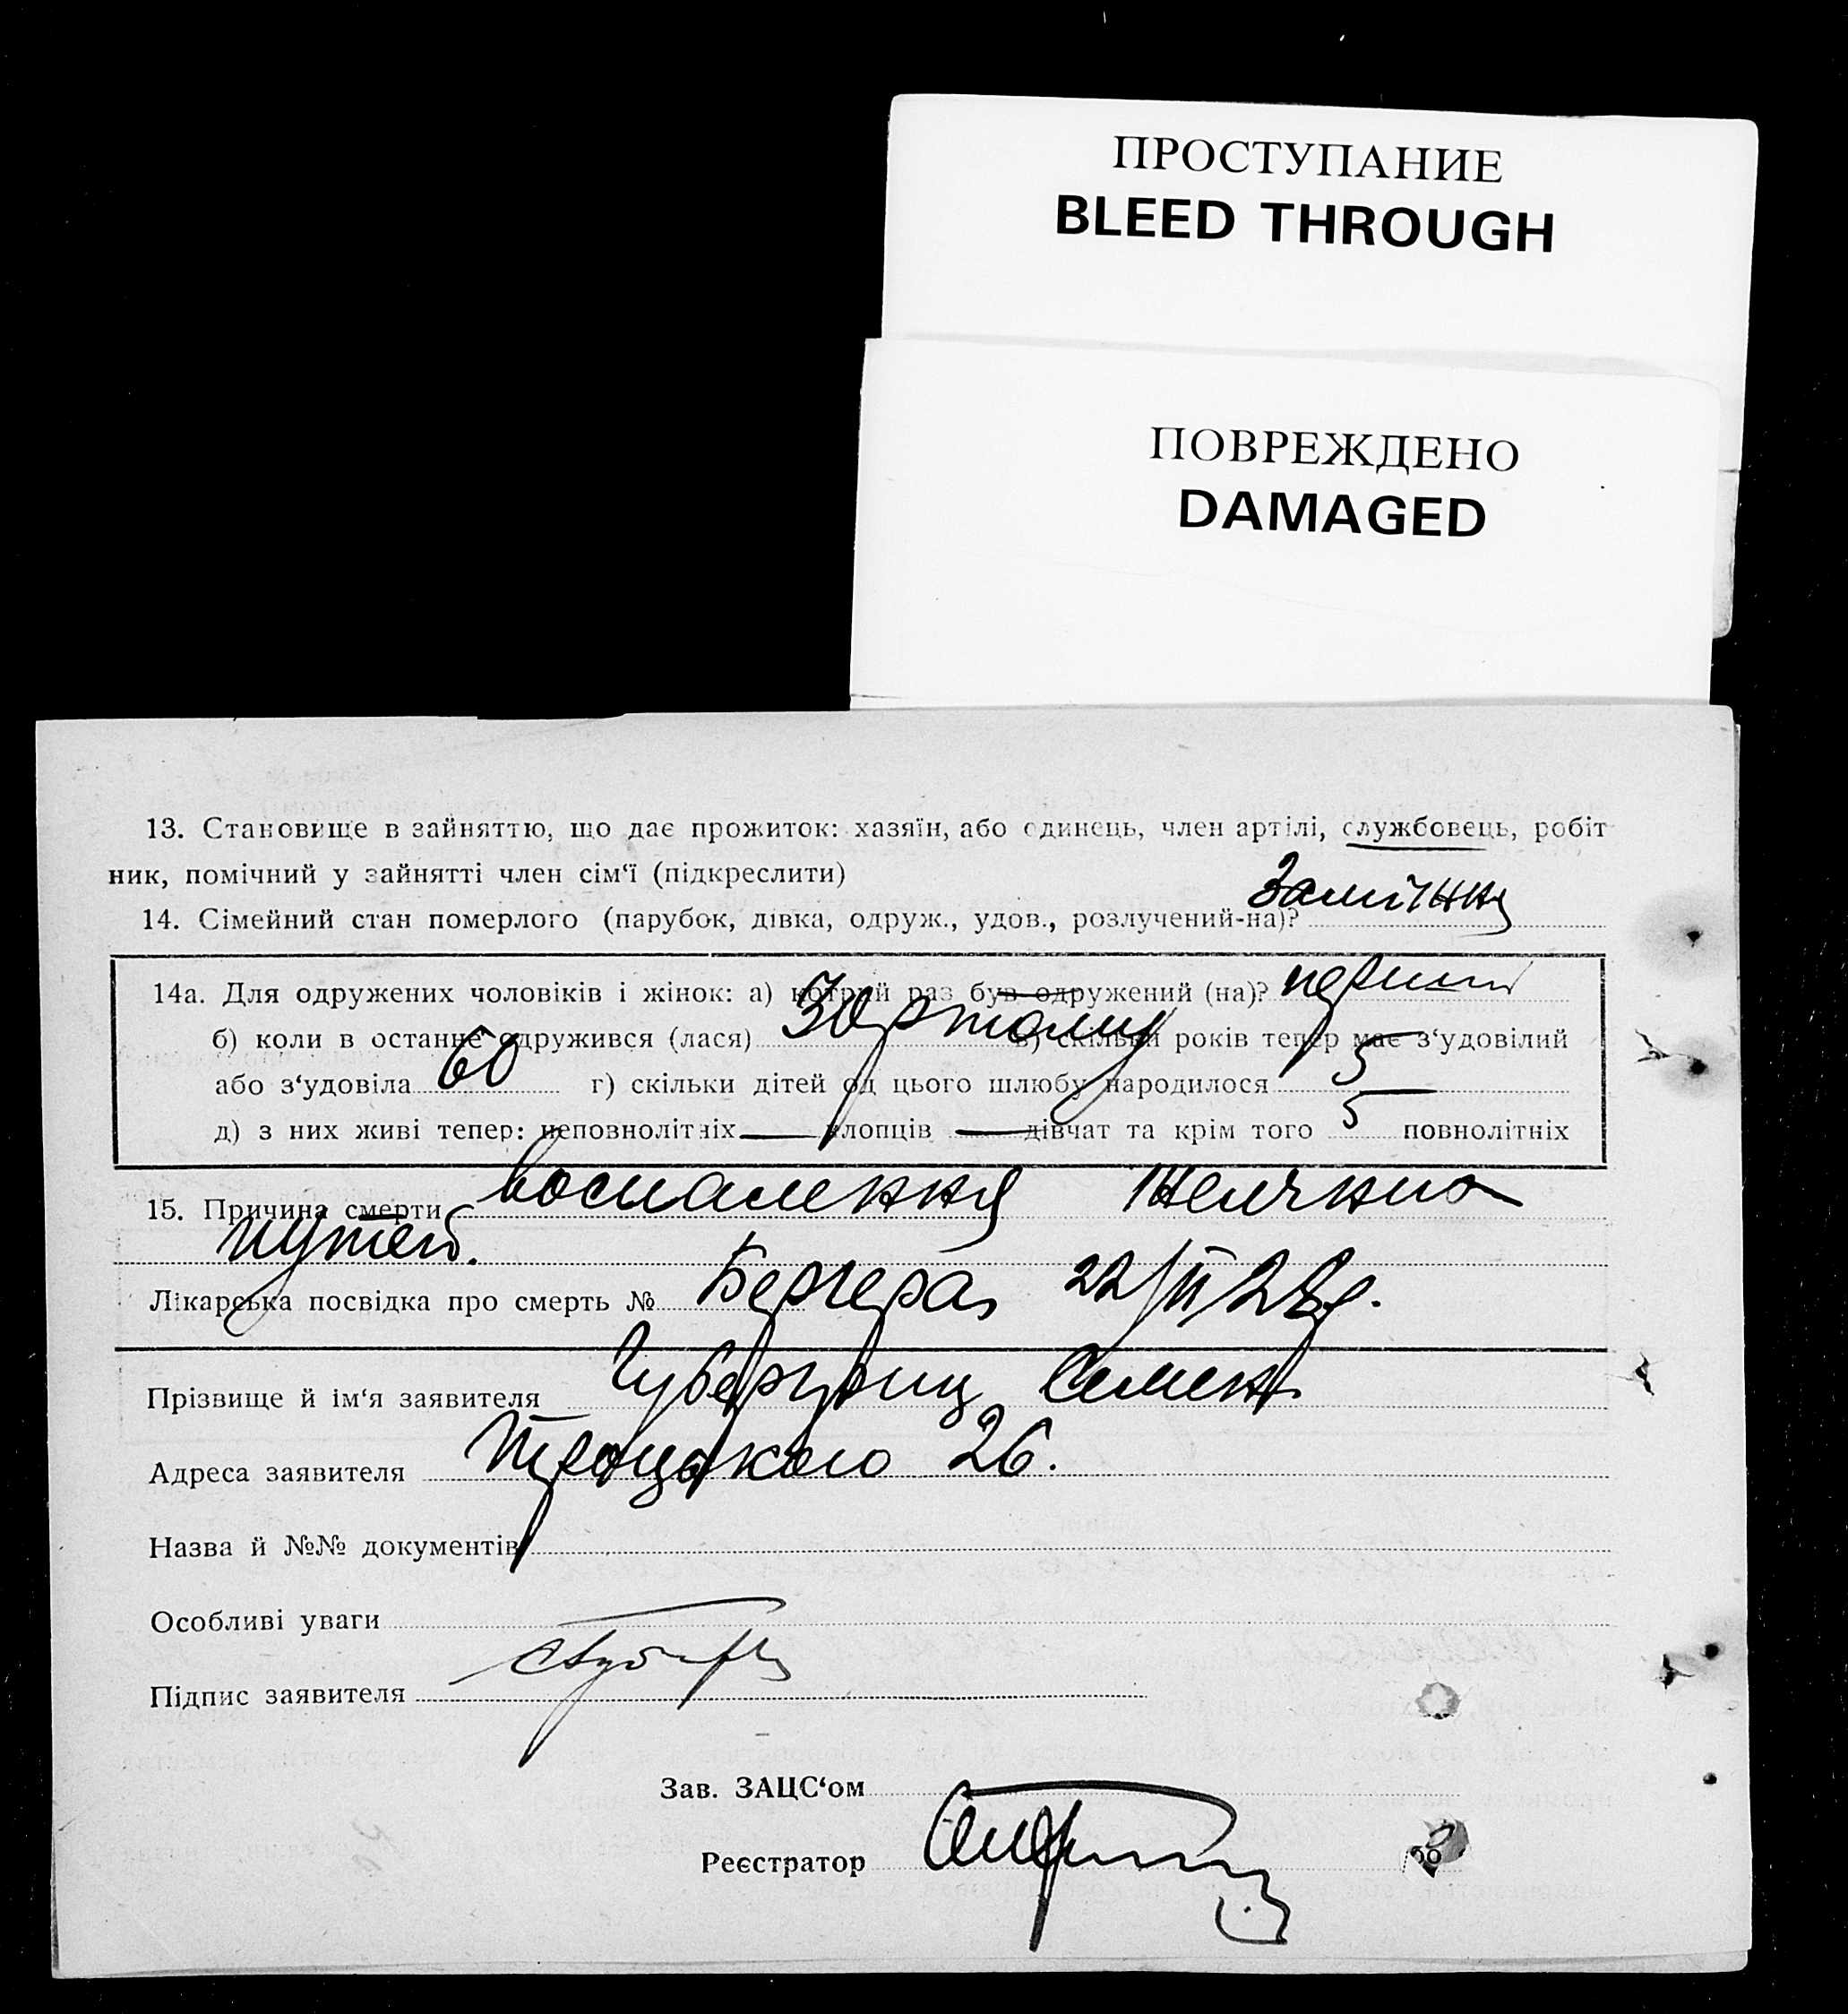 ПРОСТУПАНИЕ
BLEED THROUGH
ПОВРЕЖДЕНО
DAMAGED
13. Становище в зайняттю, що дає прожиток: хазяїн, або одинець, член артілі, службовець, робіт
ник, помічний у зайнятті член сім‘ї (підкреслити)
14. Сімейний стан померлого (парубок, дівка, одруж., удов., розлучений-на)? Заміння
14а. Для одружених чоловіків і жінок: а) котрий раз був одружений (на)? перший
б) коли в останнє одружився (лася) 30 р тому в) скільки років тепер має з‘удовілий
або з‘удовіла 60 г) скільки дітей од цього шлюбу народилося 5
д) з них живі тепер: неповнолітніх — хлопців — дівчат та крім того 5 повнолітніх
15. Причина смерти воспалення желчних
путей.
Лікарська посвідка про смерть № 22/II 28р.
Прізвище й ім‘я заявителя Губергриц Семен
Адреса заявителя Троцького 26.
Назва й №№ документів
Особливі уваги
Підпис заявителя
Зав. ЗАЦС‘ом
Реєстратор